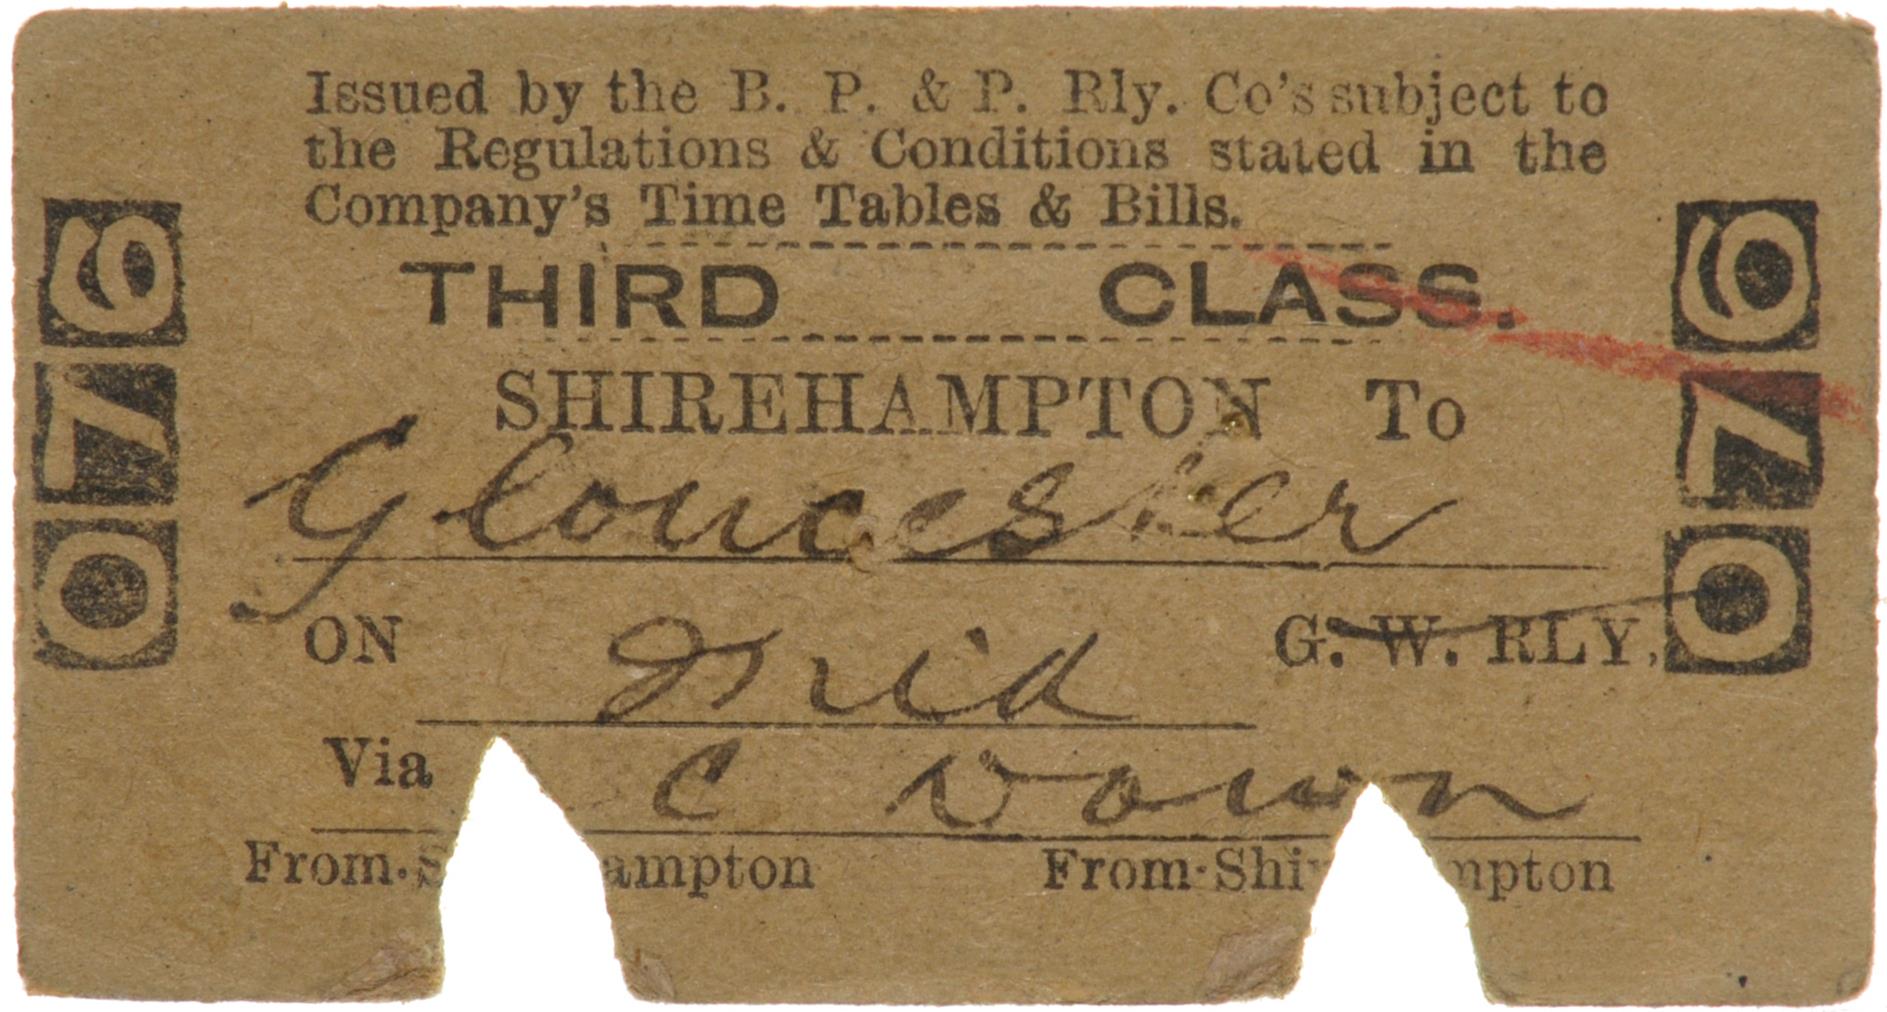 Issued by the B. P. & P. Rly. Co's subject to
the Regulations & Conditions stated in the
Company's Time Tables & Bills.
THIRD CLASS.
SHIREHAMPTON To
Gloucester
ON Mid G. W. RLY,
Via C Down
From S ampton From Shi mpton
076
076